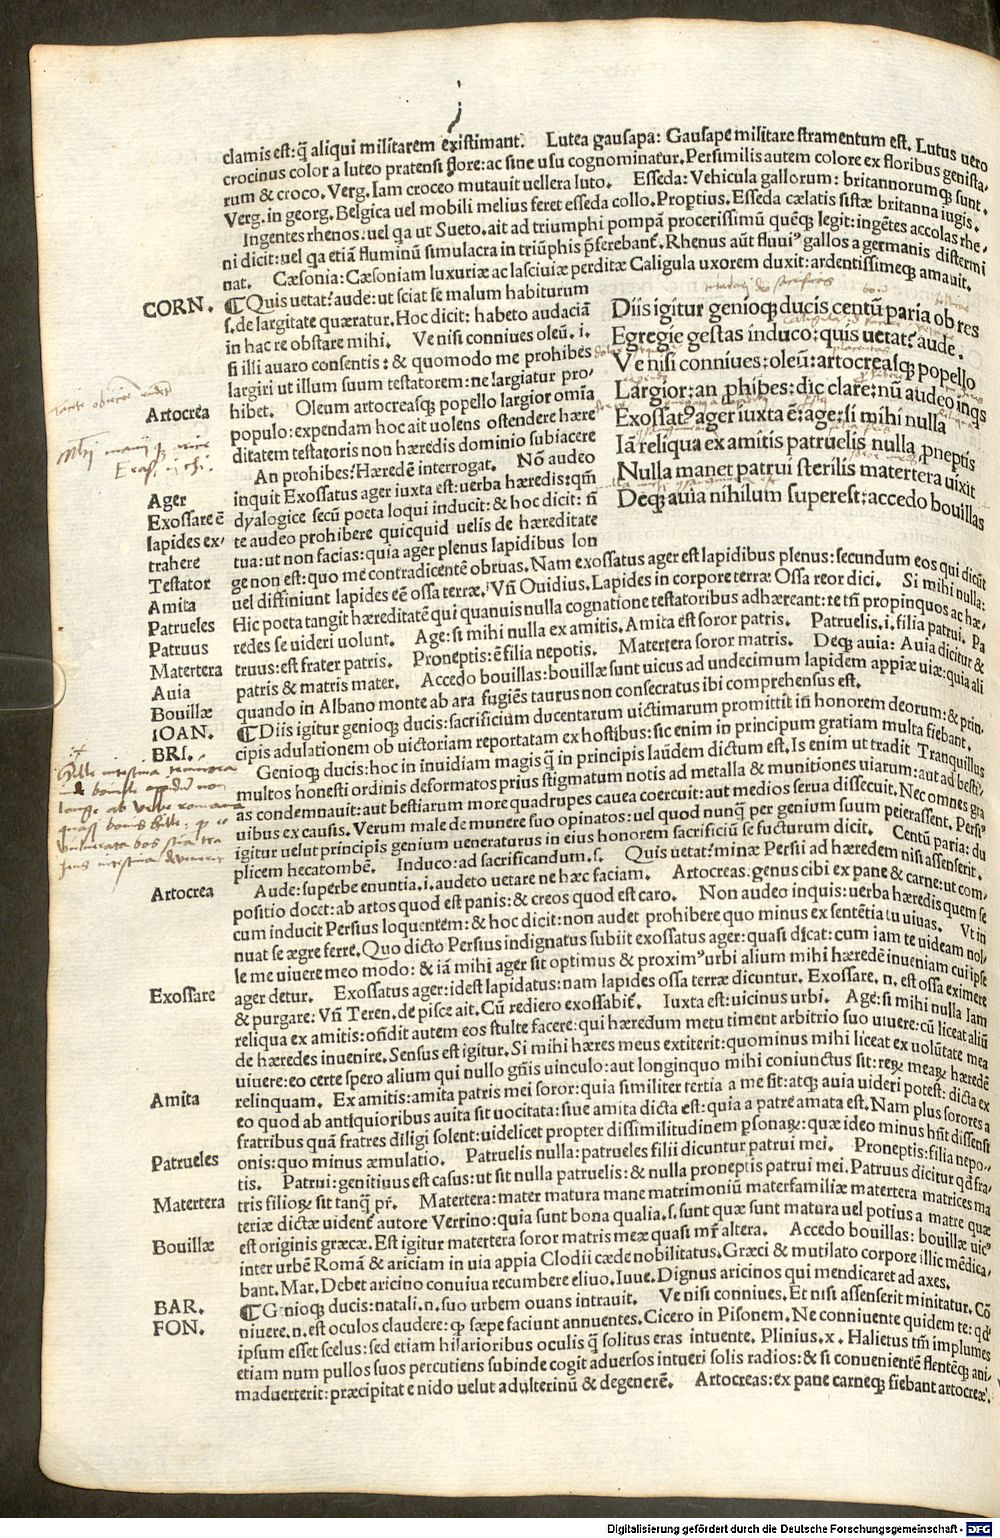 clamis est: q̃ aliqui militarem existimant. Lutea gausapa: Gausape militare stramentum est. Lutus uero
crocinus color a luteo pratensi flore: ac sine usu cognominatur. Persimilis autem colore ex floribus genista,
rum & croco. Verg. Iam croceo mutauit uellera luto. Esseda: Vehicula gallorum: britannorumq; sunt.
Verg. in georg. Belgica uel mobili melius feret esseda collo. Proptius. Esseda cælatis siste britanna iugis.
Ingentes rhenos: uel qa ut Sueto. ait ad triumphi pompã procerissimũ quẽq; legit: ingẽtes accolas rhe,
ni dicit: uel qa etiã fluminũ simulacra in triũphis p̃ferebant̃. Rhenus aũt fluui⁹ gallos a germanis distermi
nat. Cæsonia: Cæsoniam luxuriæ ac lasciuiæ perditæ Caligula uxorem duxit: ardentissimeq; amauit.
CORN. ¶ Quis uetat? aude: ut sciat se malum habiturum
s. de largitate quæratur. Hoc dicit: habeto audaciã
in hac re obstare mihi. Ve nisi conniues oleũ. i.
si illi auaro consentis: & quomodo me prohibes
largiri ut illum suum testatorem: ne largiatur pro,
Artocrea hibet. Oleum artocreasq; popello largior omia
populo: expendam hoc ait uolens ostendere hære
ditatem testatoris non hæredis dominio subiacere
An prohibes? Hæredẽ interrogat. Nõ audeo
Ager inquit Exossatus ager iuxta est: uerba hæredis: qm̃
Exossare ẽ dyalogice secũ poeta loqui inducit: & hoc dicit: ñ
lapides ex, te audeo prohibere quicquid uelis de hæreditate
trahere tua: ut non facias: quia ager plenus lapidibus lon
Diis igitur genioq; ducis centũ paria ob res
Egregie gestas induco: quis uetat? aude.
Ve nisi conniues: oleũ: artocreasq; popello
Largior: an p̱hibes: dic clare: nũ audeo inqs
Exossat⁹ ager iuxta ẽ: age: si mihi nulla
Iã reliqua ex amitis patruelis nulla, pneptis
Nulla manet patrui sterilis matertera uixit
Deq; auia nihilum superest: accedo bouillas
Testator ge non est: quo me contradicentẽ obruas. Nam exossatus ager est lapidibus plenus: secundum eos qui dicũt
Amita uel diffiniunt lapides eẽ ossa terræ. Vñ Ouidius. Lapides in corpore terræ Ossa reor dici. Si mihi nulla:
Patrueles Hic poeta tangit hæreditatẽ qui quanuis nulla cognatione testatoribus adhæreant: re tñ propinquos ac hæ,
Patruus redes se uideri uolunt. Age: si mihi nulla ex amitis. Amita est soror patris. Patruelis. i. filia patrui. Pa
Matertera truus: est frater patris. Proneptis: ẽ filia nepotis. Matertera soror matris. Deq; auia: Auia dicitur &
Auia patris & matris mater. Accedo bouillas: bouillæ sunt uicus ad undecimum lapidem appiæ uiæ: quia ali
Bouillæ quando in Albano monte ab ara fugiẽs taurus non consecratus ibi comprehensus est.
IOAN. ¶ Diis igitur genioq; ducis: sacrificium ducentarum uictimarum promittit in honorem deorum: & prin,
BRI. cipis adulationem ob uictoriam reportatam ex hostibus: sic enim in principum gratiam multa fiebant.
Genioq; ducis: hoc in inuidiam magis q̃ in principis laudem dictum est. Is enim ut tradit Tranquillus
multos honesti ordinis deformatos prius stigmatum notis ad metalla & munitiones uiarum: aut ad besti,
as condemnauit: aut bestiarum more quadrupes cauea coercuit: aut medios serua dissecuit. Nec omnes gra
uibus ex causis. Verum male de munere suo opinatos: uel quod nunq̃ per genium suum peierassent. Persi⁹
igitur uelut principis genium ueneraturus in eius honorem sacrificiũ se facturum dicit. Centũ paria: du
plicem hecatombẽ. Induco: ad sacrificandum. s. Quis uetat? minæ Persii ad hæredem nisi assenserit.
Artocrea Aude: superbe enuntia. i. audeto uetare ne hæc faciam. Artocreas: genus cibi ex pane & carne: ut com,
positio docet: ab artos quod est panis: & creos quod est caro. Non audeo inquis: uerba hæredis quem se
cum inducit Persius loquentem: & hoc dicit: non audet prohibere quo minus ex sentẽtia tu uiuas. Vt in
nuat se ægre ferre. Quo dicto Persius indignatus subiit exossatus ager: quasi dicat: cum iam te uideam nol,
le me uiuere meo modo: & iã mihi ager sit optimus & proxim⁹ urbi alium mihi hæredẽ inueniam cui ipse
Exossare ager detur. Exossatus ager: idest lapidatus: nam lapides ossa terræ dicuntur. Exossare. n. est ossa eximere
& purgare: Vñ Teren. de pisce ait. Cũ rediero exossabit̃. Iuxta est: uicinus urbi. Age: si mihi nulla Iam
reliqua ex amitis: oñdit autem eos stulte facere: qui hæredum metu timent arbitrio suo uiuere: cũ liceat aliũ
de hæredes inuenire. Sensus est igitur. Si mihi hæres meus extiterit: quominus mihi liceat ex uolũtate mea
uiuere: eo certe spero alium qui nullo gñis uinculo: aut longinquo mihi coniunctus sit: reꝝ meaꝝ hæredẽ
Amita relinquam. Ex amitis: amita patris mei soror: quia similiter tertia a me sit: atq; auia uideri potest: dicta ex
eo quod ab antiquioribus auita sit uocitata: siue amita dicta est: quia a patre amata est. Nam plus sorores a
fratribus quã fratres diligi solent: uidelicet propter dissimilitudinem p̱sonaꝝ: quæ ideo minus hñt dissensi
Patrueles onis: quo minus æmulatio. Patruelis nulla: patrueles filii dicuntur patrui mei. Proneptis: filia nepo,
tis. Patrui: genitiuus est casus: ut sit nulla patruelis: & nulla proneptis patrui mei. Patruus dicitur qd fra,
Matertera tris filioꝝ sit tanq̃ pr̃. Matertera: mater matura mane matrimoniũ materfamiliæ matertera matrices ma
teriæ dictæ uident̃ autore Vertino: quia sunt bona qualia. s. sunt quæ sunt matura uel potius a matre quæ
Bouillæ est originis græcæ. Est igitur matertera soror matris meæ quasi mr̃ altera. Accedo bouillas: bouillæ uic⁹
inter urbẽ Romã & ariciam in uia appia Clodii cæde nobilitatus. Græci & mutilato corpore illic mẽdica,
bant. Mar. Debet aricino conuiua recumbere cliuo. Iuue. Dignus aricinos qui mendicaret ad axes.
BAR. ¶ Genioq; ducis: natali. n. suo urbem ouans intrauit. Ve nisi conniues. Et nisi assenserit minitatur. Cõ
FON. niuere. n. est oculos claudere: qd sæpe faciunt annuentes. Cicero in Pisonem. Ne conniuente quidem te: qd
ipsum esset scelus: sed etiam hilarioribus oculis q̃ solitus eras intuente. Plinius. x. Halietus tm̃ implumes
etiam num pullos suos percutiens subinde cogit aduersos intueri solis radios: & si conuenientẽ flentẽq; ani,
maduerterit: præcipitat e nido uelut adulterinũ & degenerẽ. Artocreas: ex pane carneq; fiebant artocreæ.
Digitalisierung gefördert durch die Deutsche Forschungsgemeinschaft - DFG